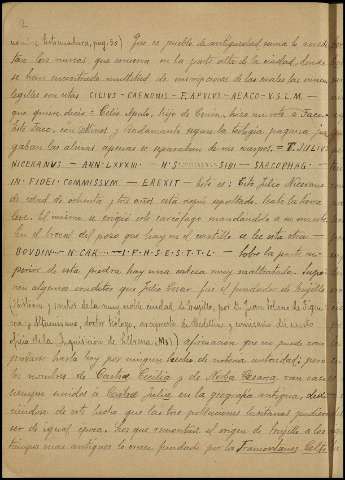 2
Extremadura, pag. 35) Que es pueblo de antigüedad suma lo acredi-
tan los muros que conserva en la parte alta de la ciudad, donde
se han encontrado multitud de inscripciones de las cuales las mas
legibles son estas CILIUS - CAENONIS - F. APVLVS - AEACO - V.S.L.M. -
que quiere decir: Celio Apulo, hijo de Cenon, hizo un voto a Eaco.
Este Eaco, con Minos y Radamanto segun la teologia pagana juz-
gaban las almas apenas se separaban de sus cuerpos. = T. JULIUS
NICERANUS - ANN LXXXIII - H S SIBI - SARCOPHAG -
IN FIDEI COMMISSVM - EREXIT - esto es: Tito Julio Nicerano
de edad de ochenta y tres años está aqui sepultado. Seale la tierra
leve. El mismo se erigió este sarcófago mandandolo en su
En el brocal del pozo que hay en el castillo se lee esta otra -
BOVDIN - N CAR - I P H S E S T T L - Sobre la parte su-
perior de esta piedra hay una cabeza muy maltratada. Supo-
nen algunos eruditos que Julio Cesar fue el fundador de Trujillo
(Historia y santos de la muy noble ciudad de Trujillo, por D. Juan
, docto teologo, arcipreste de Medellin y comisario del santo
oficio de la Inquisicion de Llerena, Ms) afirmacion que no puede com-
probarse hasta hoy por ningun hecho de notoria autoridad; pero
los nombres de Castra Cecilia y de Norba Cesarea van casi
siempre unidos á Castra Julia en la geografia antigua, dedu-
ciendose de este hecho que las tres poblaciones lusitanas pudieron
ser de igual epoca. Los que remontan el origen de Trujillo a los
tiempos mas antiguos lo creen fundado por los Transmontanos Celti-